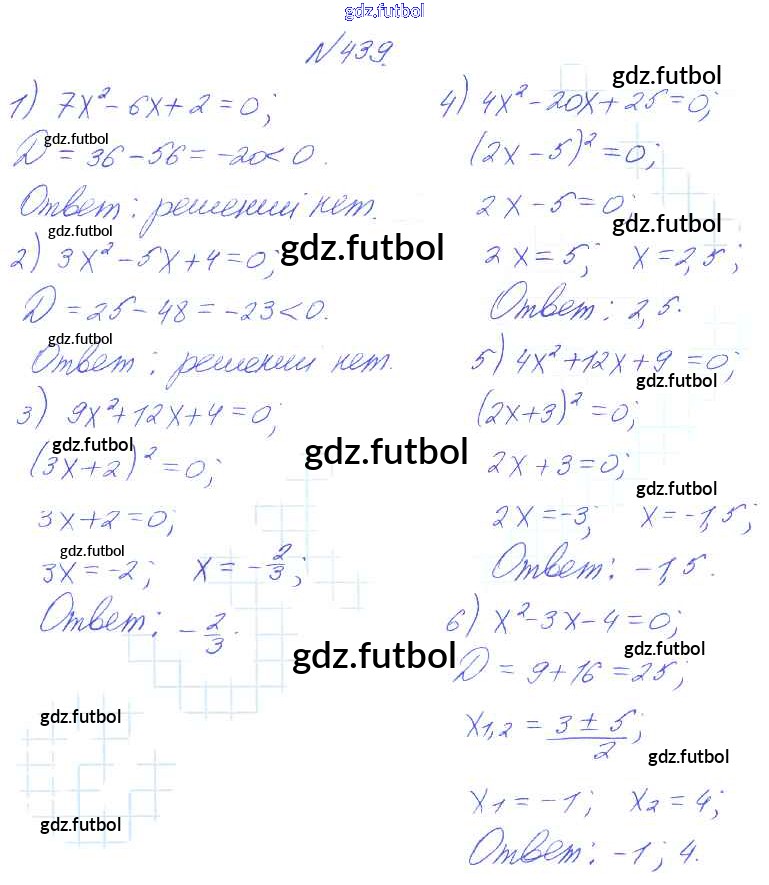 gdz.futbol
№439.
1) 7x² - 6x + 2 = 0;
gdz.futbol
D = 36 - 56 = -20 < 0.
Ответ: решений нет.
2) 3x² - 5x + 4 = 0;
gdz.futbol
gdz.futbol
D = 25 - 48 = -23 < 0.
gdz.futbol
Ответ: решений нет.
3) 9x² + 12x + 4 = 0;
gdz.futbol
gdz.futbol
(3x + 2)² = 0;
3x + 2 = 0;
gdz.futbol
3x = -2; x = -2/3;
Ответ: -2/3.
gdz.futbol
gdz.futbol
gdz.futbol
gdz.futbol
4) 4x² - 20x + 25 = 0;
(2x - 5)² = 0;
2x - 5 = 0;
gdz.futbol
2x = 5; x = 2,5;
Ответ: 2,5.
5) 4x² + 12x + 9 = 0;
gdz.futbol
(2x + 3)² = 0;
2x + 3 = 0;
gdz.futbol
2x = -3; x = -1,5;
Ответ: -1,5.
6) x² - 3x - 4 = 0;
gdz.futbol
D = 9 + 16 = 25;
x₁,₂ = (3 ± 5)/2;
gdz.futbol
x₁ = -1; x₂ = 4;
Ответ: -1; 4.